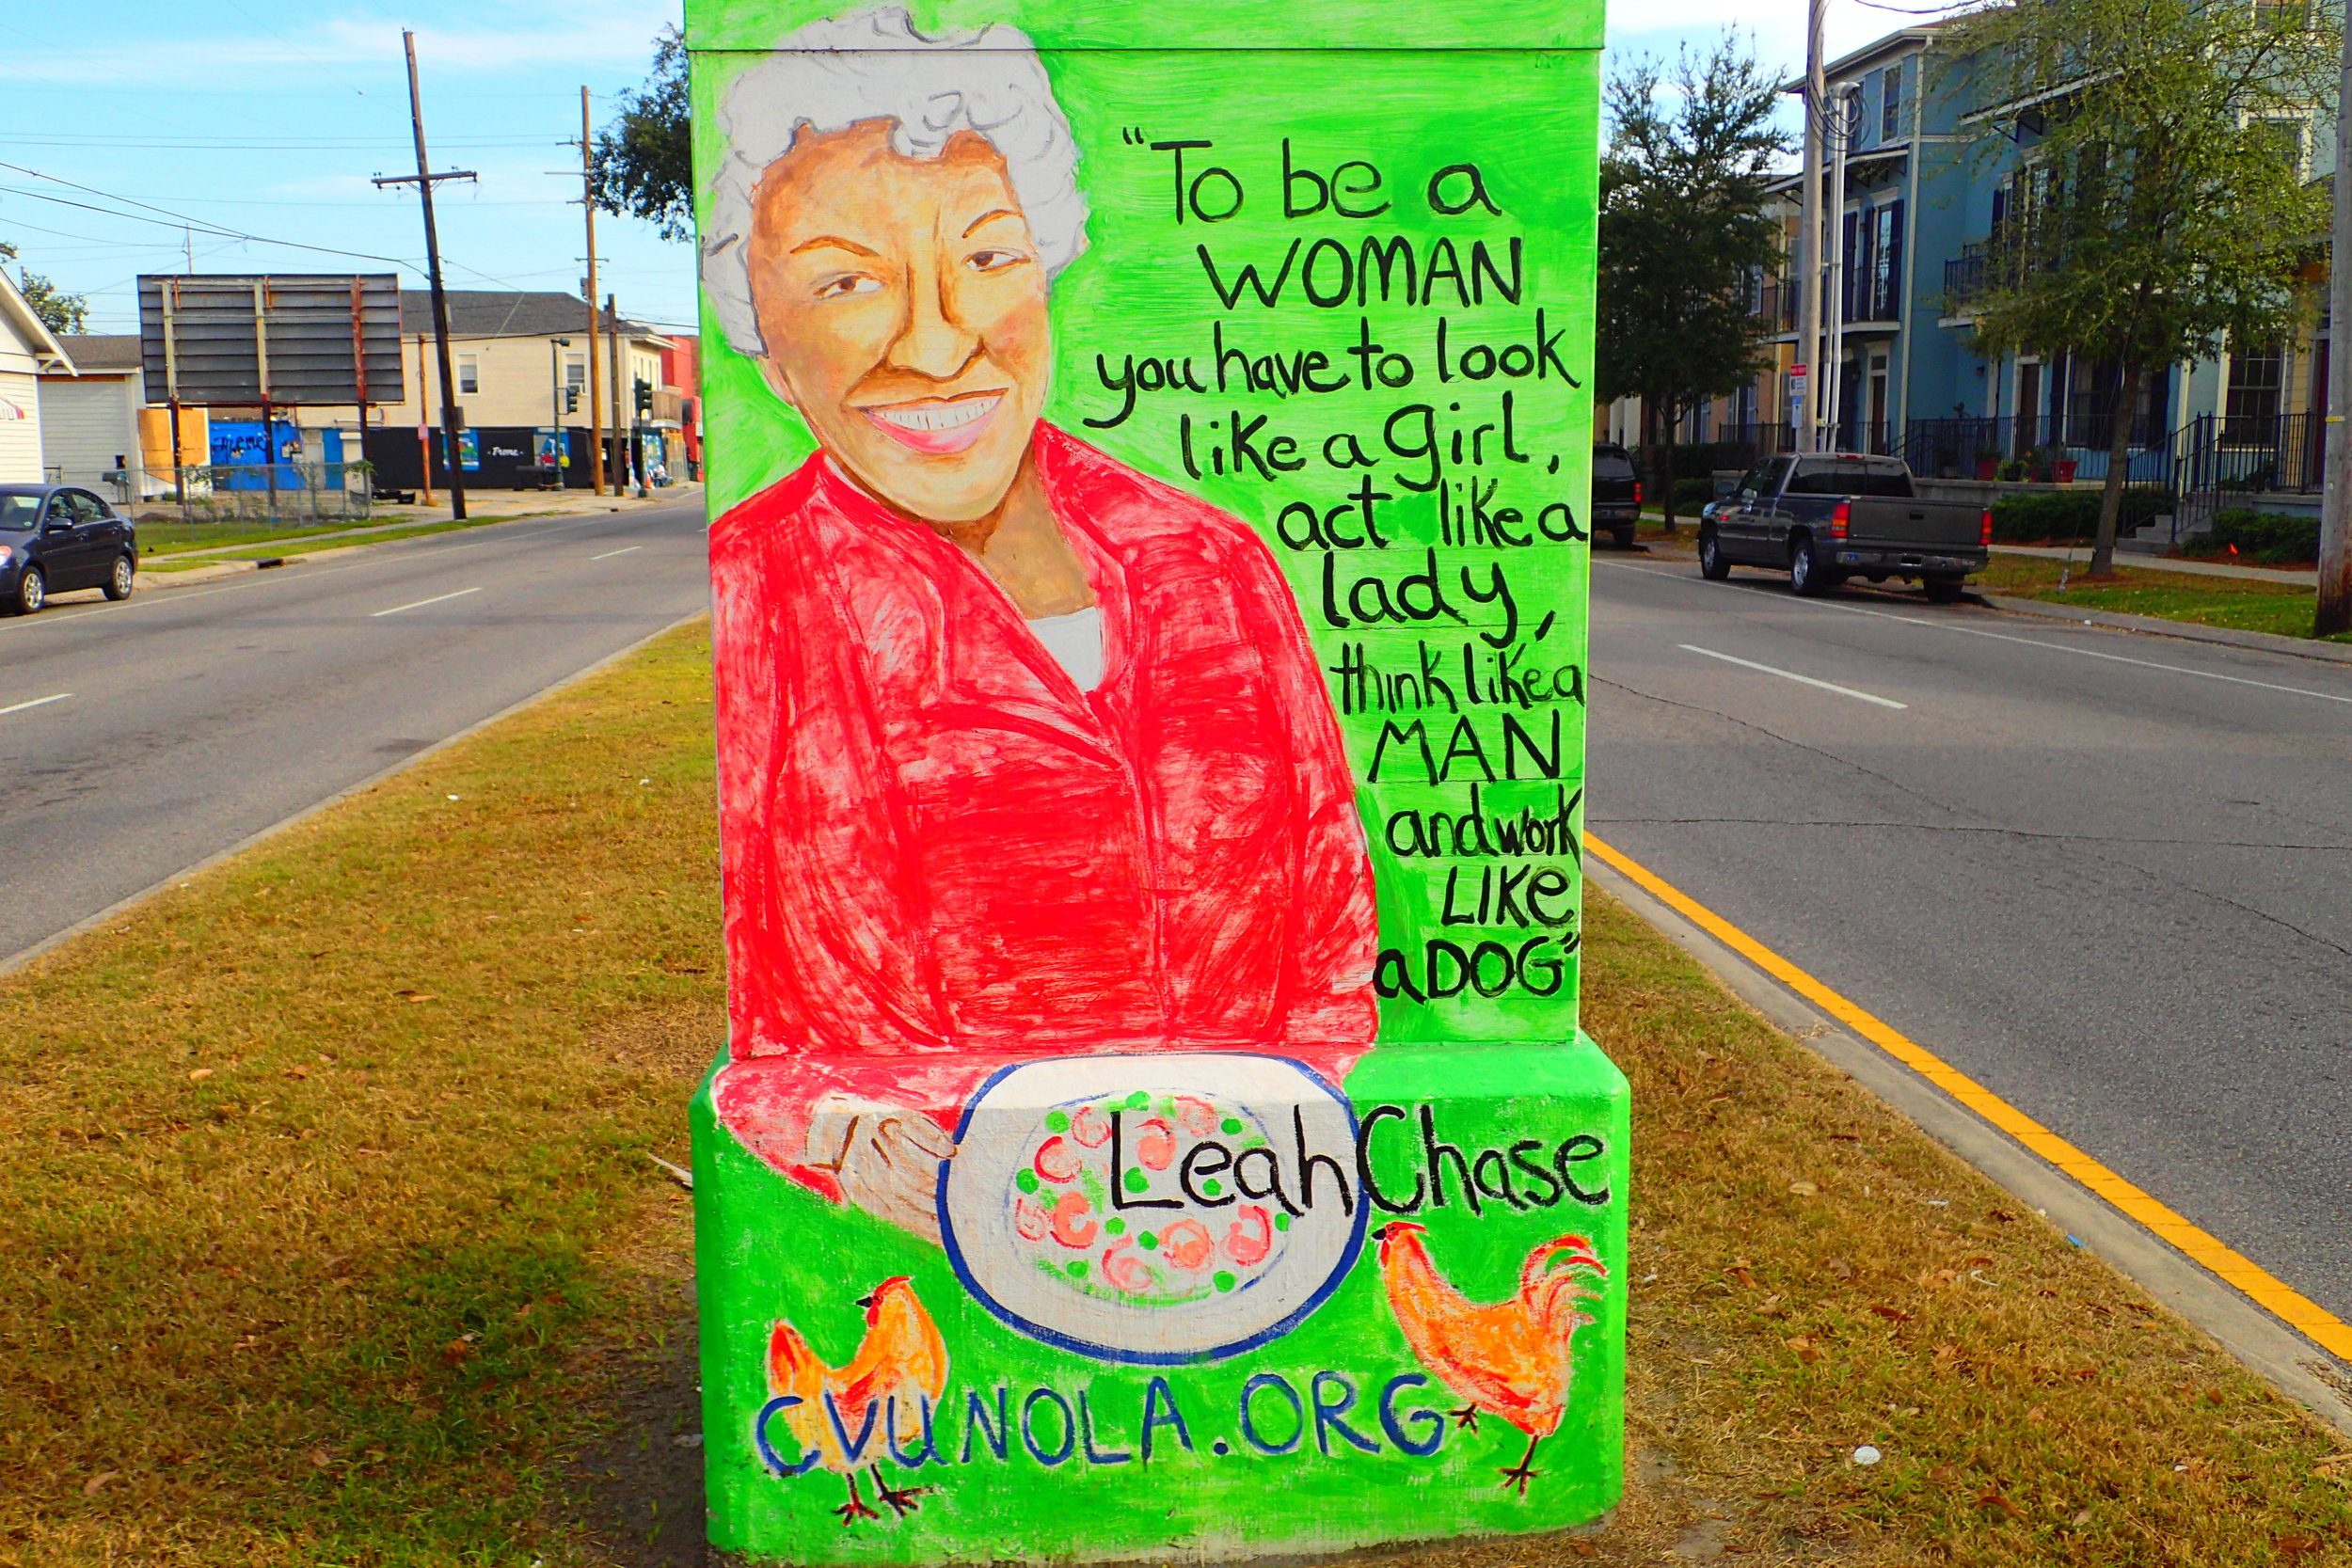 "To be a
WOMAN
you have to look
like a girl,
act like a
lady,
think like a
MAN
and work
LIKE
a DOG"
Leah Chase
CVUNOLA.ORG
Treme
Treme